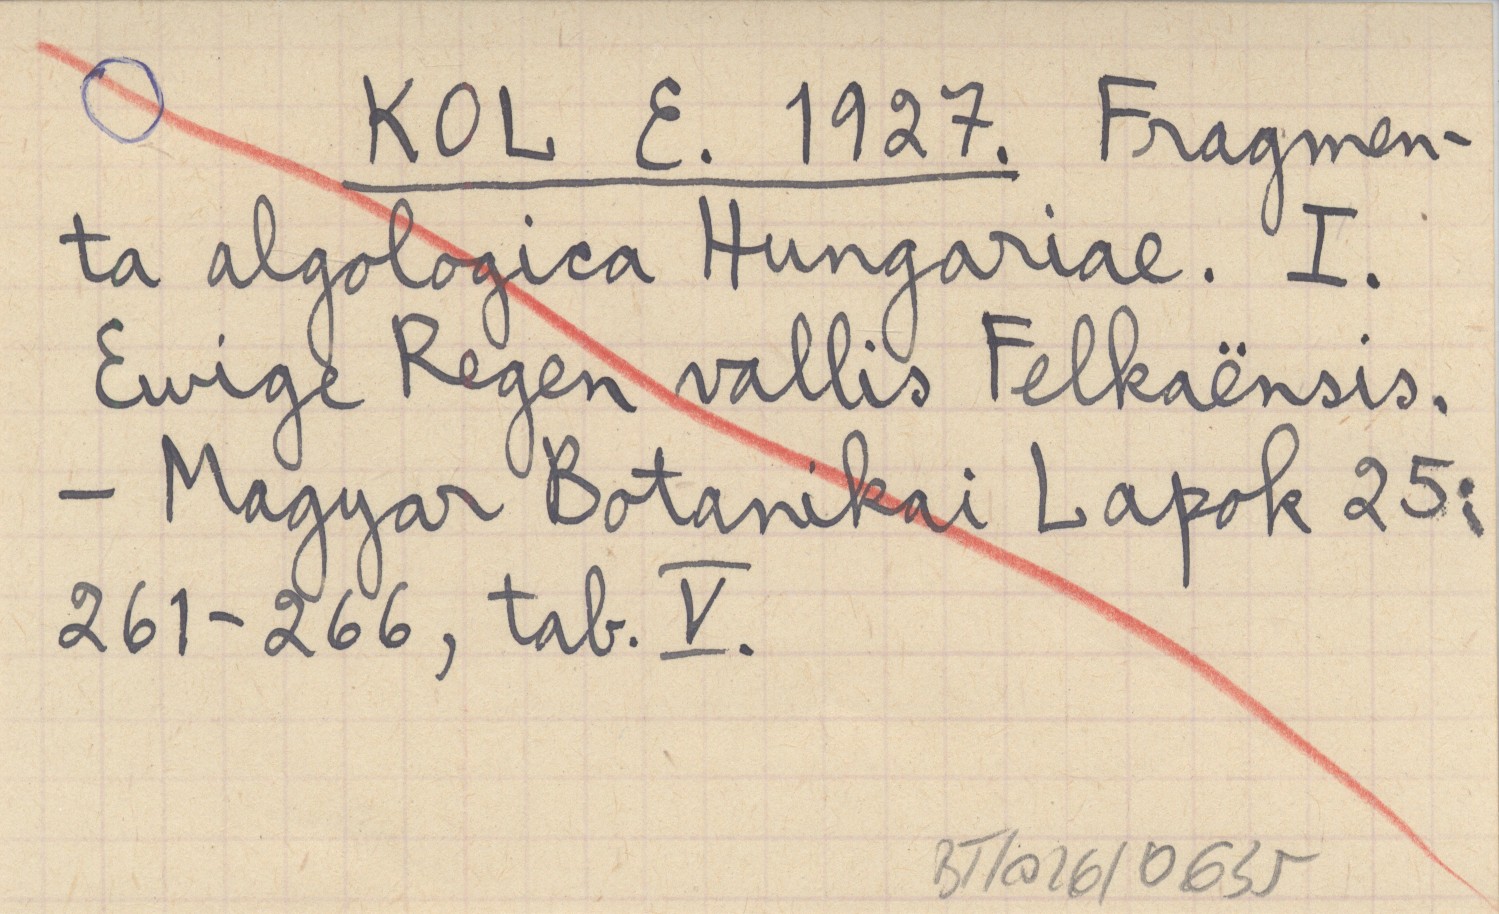 KOL E. 1927. Fragmen-
ta algologica Hungariae. I.
Ewige Regen vallis Felkaënsis.
– Magyar Botanikai Lapok 25:
261-266, tab. V.
0635